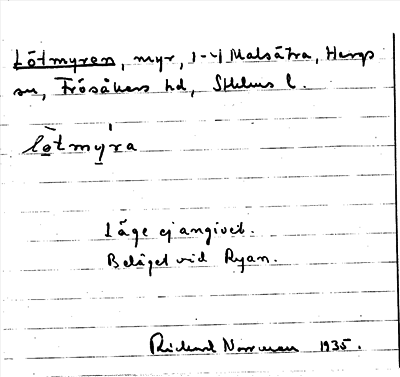 Lötmyren, myr, 1-4 Malsätra, Hargs
sn, Frösåkers hd, Sthlms l.
lòtmýra
Läge ej angivet.
Beläget vid Ryan.
Rickard Norrman 1935.